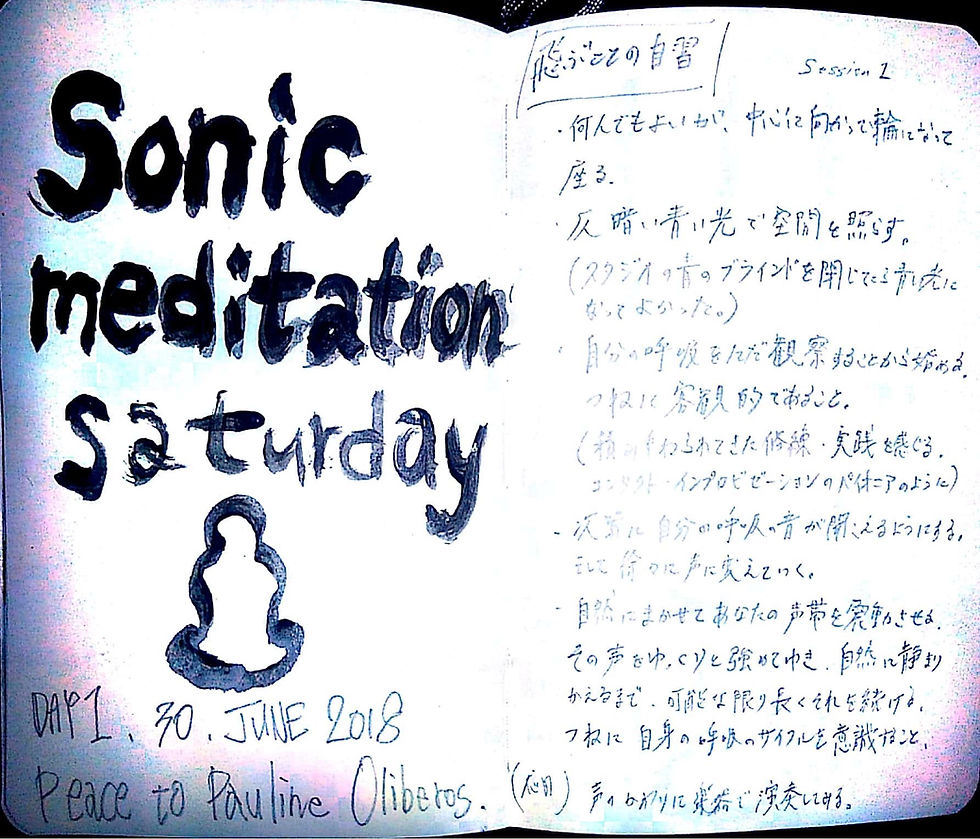 Sonic
meditation
Saturday
DAY 1. 30. JUNE 2018
Peace to Pauline Oliberos.
聴ぶことの自習
Session 1
・何人でもよいが、中心に向かって輪になって
座る.
・仄暗い青い光で空間を照らす。
(スタジオの青のブラインドを閉じてたら青い光に
なってよかった。)
・自分の呼吸をただ観察することから始める.
つねに客観的であること.
(積み重ねられてきた修練・実践を感じる.
コンタクト・インプロビゼーションのパイオニアのように)
・次第に自分の呼吸の音が聞こえるようにする.
そして徐々に声に変えていく.
・自然にまかせてあなたの声帯を震動させる.
その声をゆっくりと強めてゆき、自然に静まり
かえるまで、可能な限り長くそれを続ける.
つねに自身の呼吸のサイクルを意識すること.
(応用) 声のかわりに楽器で演奏してみる。